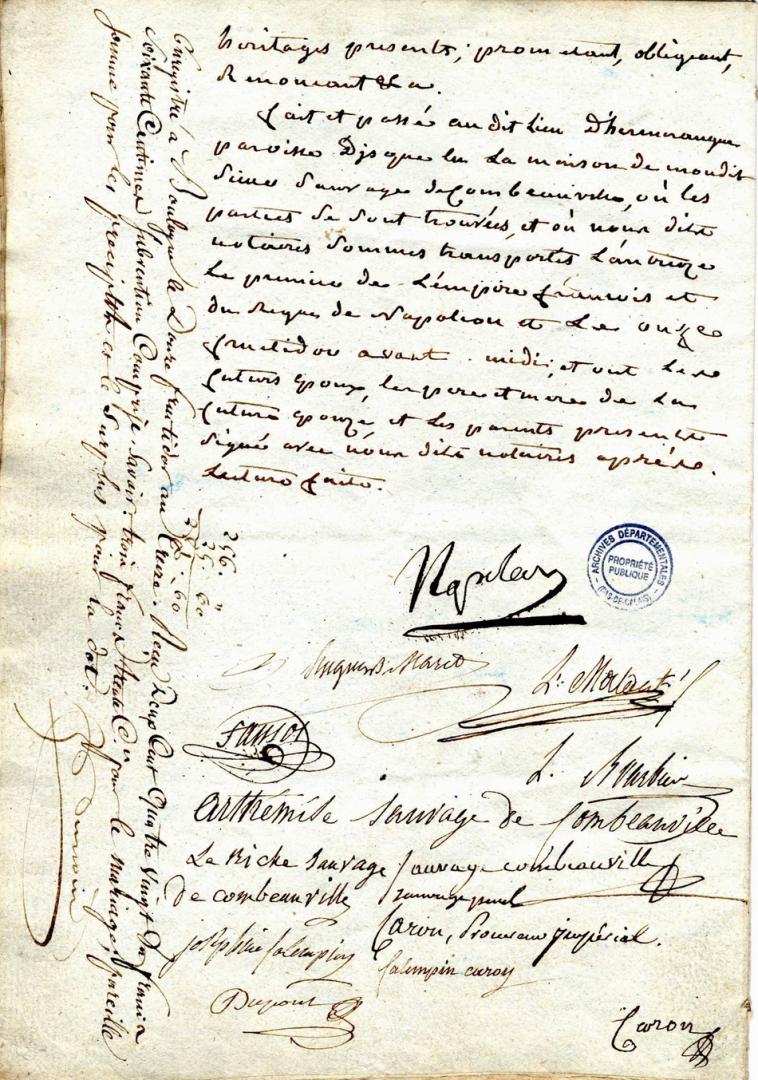 heritages presents; prometant, obligeant,
Renoncant &a.
fait et passé au dit Lieu D'hermerangue
paroisse Disque En La maison de mondit
Sieur Sauvage de Combeauville, où les
parties se sont trouvées, et où nous dits
notaires sommes transportés L'an treize
Le premier de L'empire françois et
du Regne de Napoleon et Le onze
fructidor avant midi; et ont Les
futurs époux, les pere et mere de La
future épouze et Les parents presents
signé avec nous dits notaires après
Lecture faite.
256. "
25. 60
281. 60
Enregistré à Boulogne le Douze fructidor an treize. Reçu Deux Cent Quatre vingt un francs
Soixante Centimes Subvention Comprise. Savoir: trois francs Trente Cs pour le mariage, pareille
somme pour les et le Surplus pour la dot.
Hugues B. Maret
fansot
L.
arthémise sauvage de Combeauville
Le Riche sauvage
de combeauville
Sauvage combeauville
Caron, Procureur impérial.
josephine
caron
Dupont
Caron
ARCHIVES DÉPARTEMENTALES
PROPRIÉTÉ
PUBLIQUE
(PAS-DE-CALAIS)